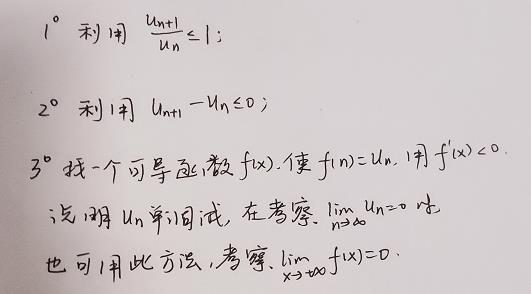 1° 利用 u_{n+1}/u_n ≤ 1;
2° 利用 u_{n+1} - u_n ≤ 0;
3° 找一个可导函数 f(x). 使 f(n) = u_n. 用 f'(x) < 0.
说明 u_n 单调减, 在考察 lim_{n→∞} u_n = 0 时
也可用此方法, 考察 lim_{x→+∞} f(x) = 0.